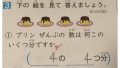 3 下の絵を見て答えましょう。
① プリンぜんぶの数は○この
いくつ分ですか。
( 4の 4つ分 )